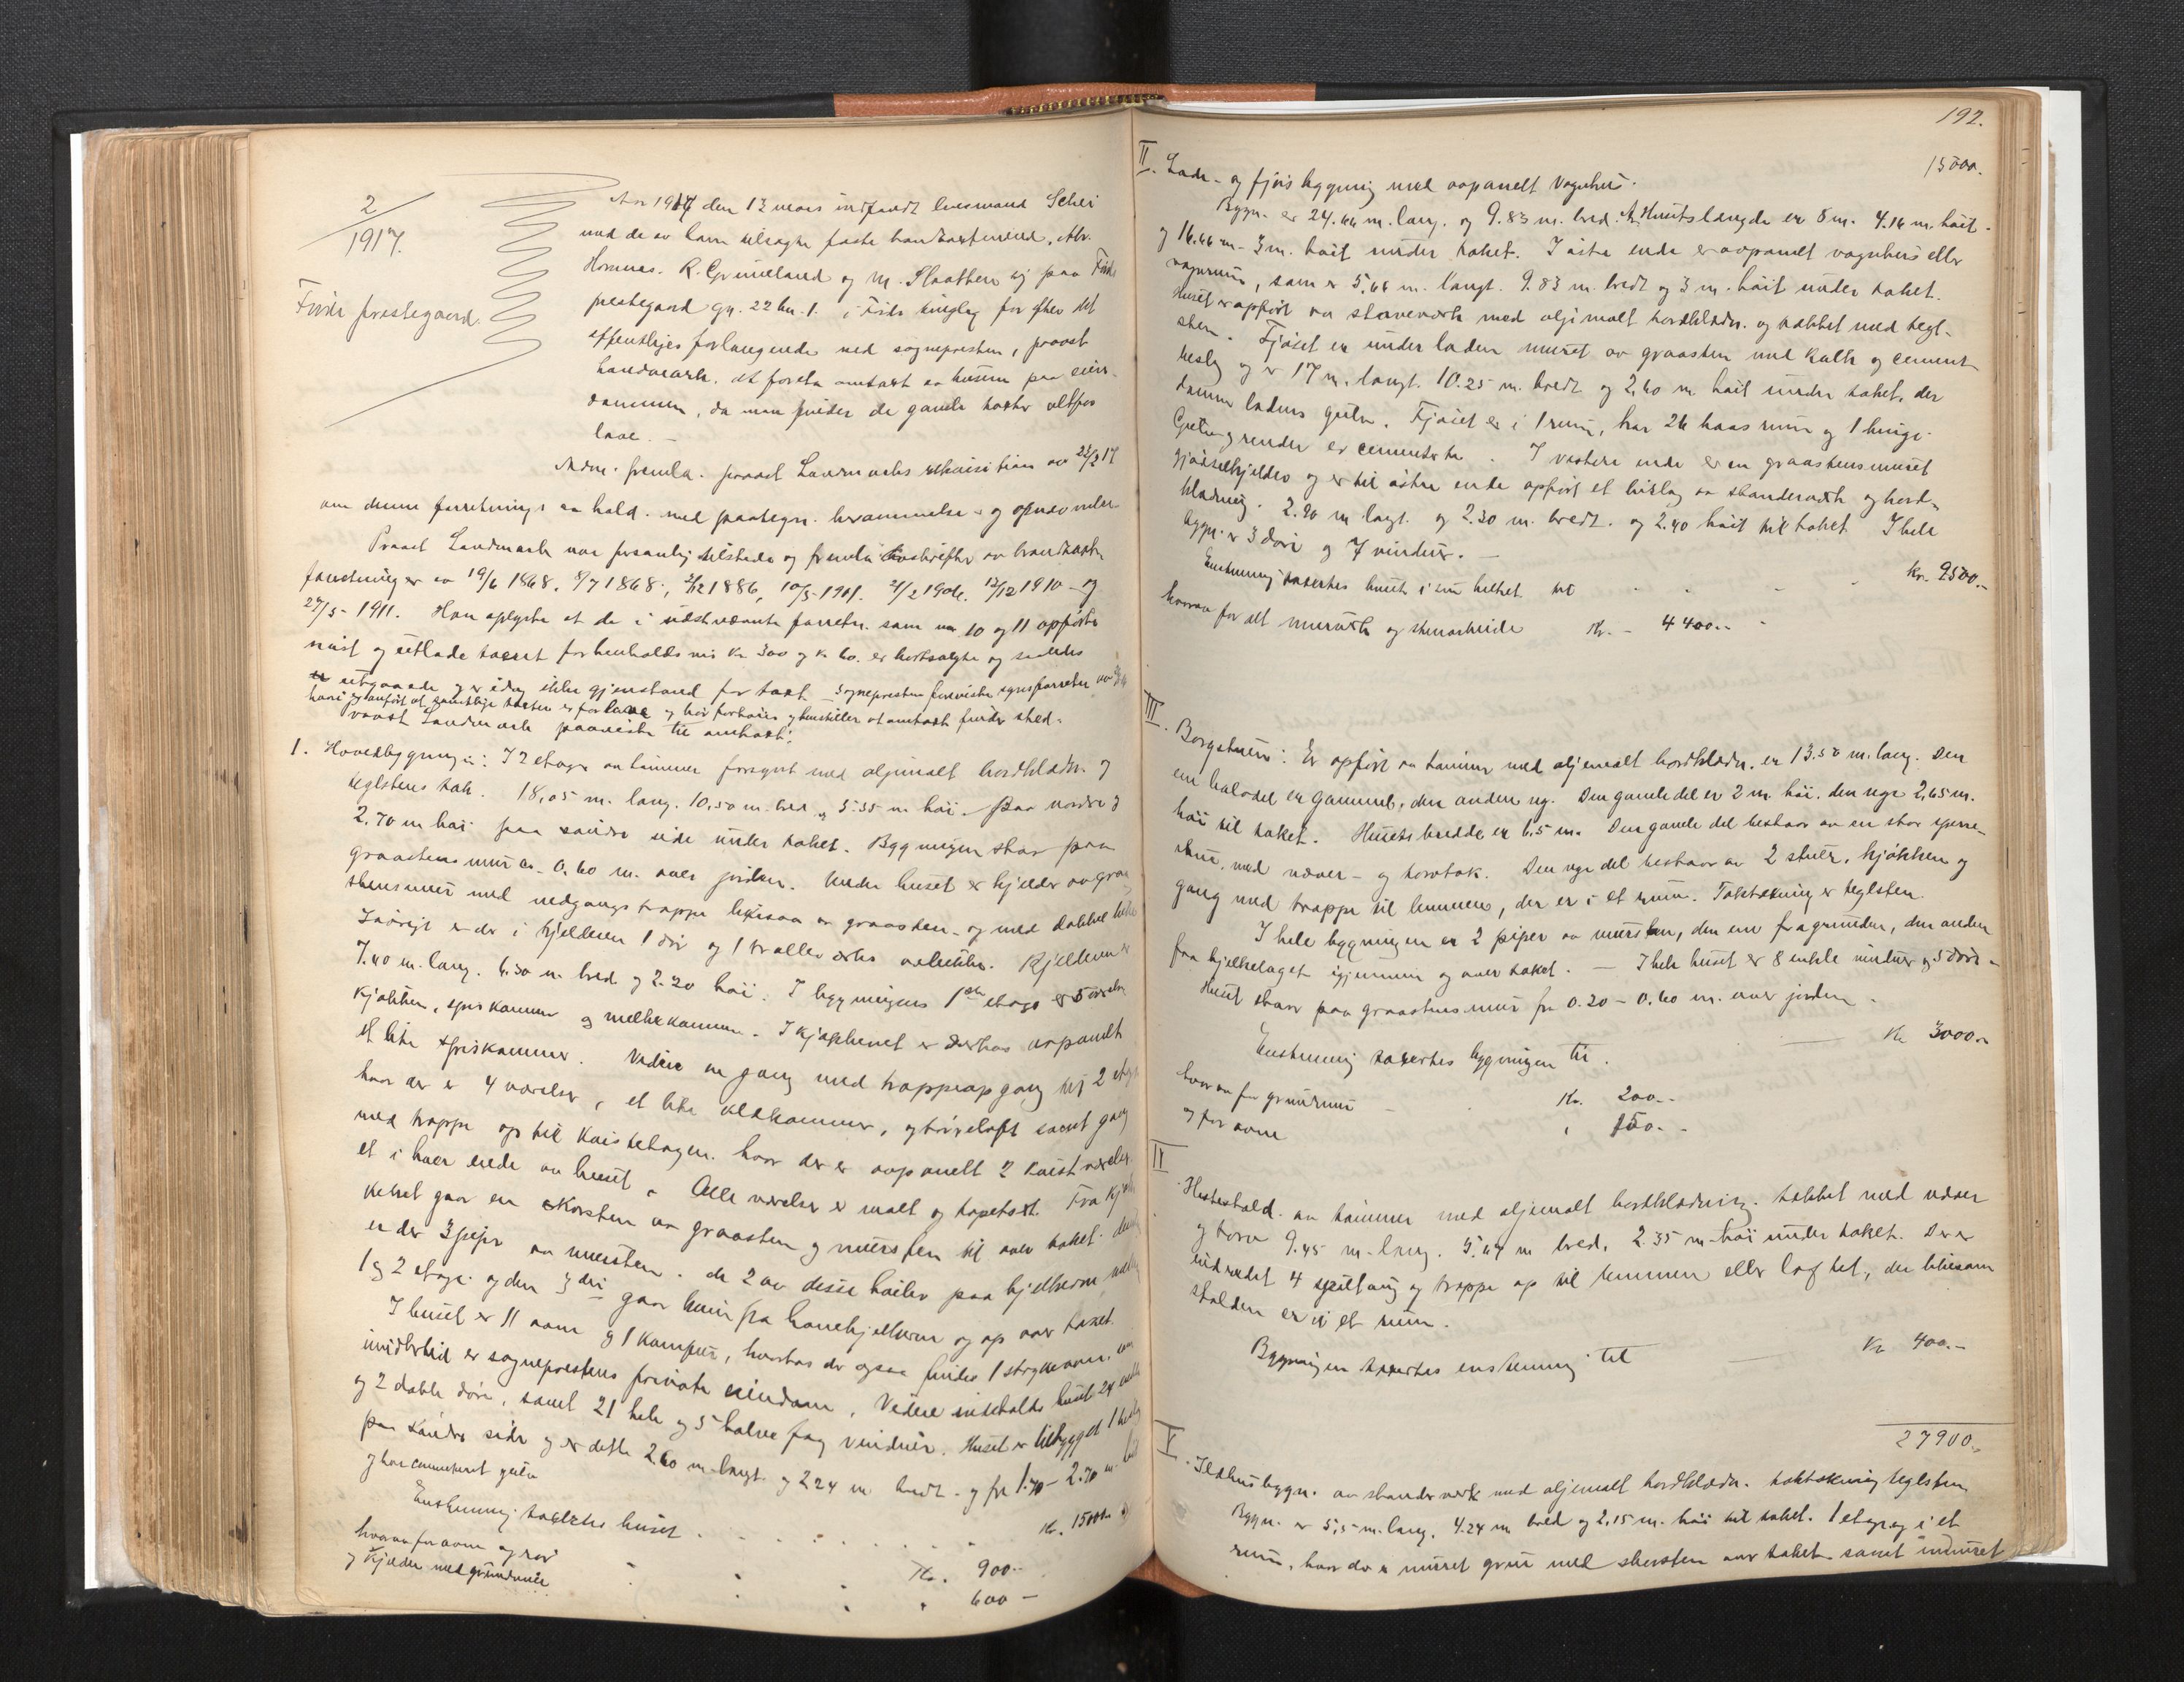 2/1917.
Førde prestegaard.
Aar 1917 den 13 mars indfandt lensmand Schei
med de av ham tilsagte faste brandtaxtmænd, Abr.
Hornnes, R. Grimeland og M. Slaatten sig paa Førde
prestegaard gn. 22 bn. 1. i Førde tinglag for efter det
offentliges forlangende ved sognepresten, provst
Landmark, at foreta omtaxt av husene paa eien-
dommen, da man finder de gamle taxter altfor
lave. -
Adm. fremla. provst Landmarks rekvisition av 22/2 17
om denne forretnings avhold. med paategn. berammelse og
Provst Landmark var personlig tilstede og fremla avskrifter av brandtaxt
forretninger av 19/6 1868, 8/7 1868, 2/12 1886, 10/5-1901. 21/2 1906. 12/12 1910 - og
27/5-1911. Han oplyste at de i nestnævnte forretn. som no 10 og 11 opførte
nøst og utlade taxert for henholdsvis kr 300 og kr 60. er bortsolgte og saaledes
utgaaede og er idag ikke gjenstand for taxt. Sognepresten foreviste synsforretn av
hvori er anført at samtlige taxter er for lave og bør forhøies og henstiller at omtaxt finder sted.
Provst Landmark paaviste til omtaxt:
1. Hovedbygningen: I 2 etager av tømmer forsynt med oljemalt bordklædn. og
teglstens tak. 18,05 m. lang. 10,50 m. bred og 5.55 m. høi paa nordre og
2.70 m høi paa søndre side under taket. Bygningen staar paa
graastensmur ca. 0.60 m. over jorden. Under huset er kjelder av graa
stensmur med nedgangstrappe likesaa av graasten - og med dobbel
Iøvrigt er der i kjelderen 1 dør og 1 tralleværks avlukke. Kjelderen er
7.40 m. lang. 6.30 m. bred og 2.20 høi. I bygningens 1ste etage er 5 værelser
kjøkken, spiskammer og melkekammer. I kjøkkenet er derhos avpanelt
et lite spiskammer. Videre en gang med trappeopgang til 2 etage
hvor der er 4 værelser, et lite klækammer, og tørkeloft samt gang
med trappe op til kvistetagen. hvor der er avpanelt 2 kvistværelser
et i hver ende av huset. Alle værelser er malt og tapetsert. Fra kjøk-
kenet gaar en skorsten av graasten og mursten til over taket.
er der 3 piper av mursten. de 2 av disse hviler paa bjelkerne
1 og 2 etage. og den 3die gaar kun fra hanebjelkerne og op over taket.
I huset er 11 ovne og 1 komfur, hvorhos der ogsaa findes 1 strykeovn,
imidlertid er sogneprestens private eiendom. Videre indeholder huset 24
og 2 doble døre, samt 21 hele og 5 halve fag vinduer. Huset er tilbygget 1
paa søndre side og er dette 2.60 m. langt og 2.24 m bredt - og fra 1.70 - 2.70 m.
og har cementeret gulv
Enstemmig taxertes huset . . . Kr. 15000
hvorav for ovne og rør . . Kr. 900.-
og kjelder med grundmur . . " 600 -
192.
15000.
II. Lade- og fjøsbygning med avpanelt vognhus.
Bygn. er 24.66 m. lang. og 9.83 m. bred. Av husets længde er 8 m. 4.16 m. høit
og 16.66 m - 3 m. høit under taket. I østre ende er avpanelt vognhus eller
vognrum, som er 5,66 m. langt. 9.83 m. bredt og 3 m. høit under taket.
Huset er opført av staveverk med oljemalt bordklædn. og tækket med tegl-
sten. Fjøset er under laden muret av graasten med kalk og cement-
beslag og er 17 m. langt. 10.25 m. bredt og 2,60 m høit under taket, der
danner ladens gulv. Fjøset er i 1 rum, har 26 baasrum og 1 binge.
Gulv og render er cementerte. I vestre ende er en graastensmuret
gjødselkjelder og er til østre ende opført et bislag av standerverk og bord-
klædning. 2.90 m langt. og 2.30 m. bredt. og 2.40 høit til taket. I hele
bygn. er 3 døre og 7 vinduer. -
Enstemmig taxertes huset i sin helhet til . . . kr. 9500.-
hvorav for alt murverk og stenarbeide kr. - 4400.-
III. Borgstuen: Er opført av tømmer med oljemalt bordklædn. er 13.50 m. lang. Den
ene halvdel er gammel, den anden ny. Den gamle del er 2 m. høi. den nye 2,65 m.
høi til taket. Husets bredde er 6.5 m. Den gamle del bestaar av en stor sperre-
stue, med næver- og torvtak. Den nye del bestaar av 2 stuer, kjøkken og
gang med trappe til lemmen, der er i et rum. Taktækning er teglsten.
I hele bygningen er 2 piper av mursten, den ene fra grunden, den anden
fra bjelkelaget igjennem og over taket. - I hele huset er 8 enkle vinduer og 5 døre -
Huset staar paa graastensmur fra 0.20 - 0.60 m. over jorden.
Enstemmig taxertes bygningen til . — Kr 3000.-
hvorav for grundmur - Kr. 200.-
og for ovne " 150.-
IV
Hestestald. av tømmer med oljemalt bordklædning. tækket med næver
og torv 9.45 m. lang. 5.64 m bred. 2.35 m. høi under taket. Der er
indredet 4 spiltaug og trappe op til lemmen eller loftet, der likesom
stalden er i et rum.
Bygningen taxertes enstemmig til — Kr 400.-
27900.-
V. Ildhusbygn. av standerverk med oljemalt bordklædn. taktækning teglsten
Bygn. er 5,5 m. lang. 4.24 m bred og 2.15 m. høi til taket. 1 etage og i et
rum, hvor der er muret grue med skorsten over taket samt indmuret